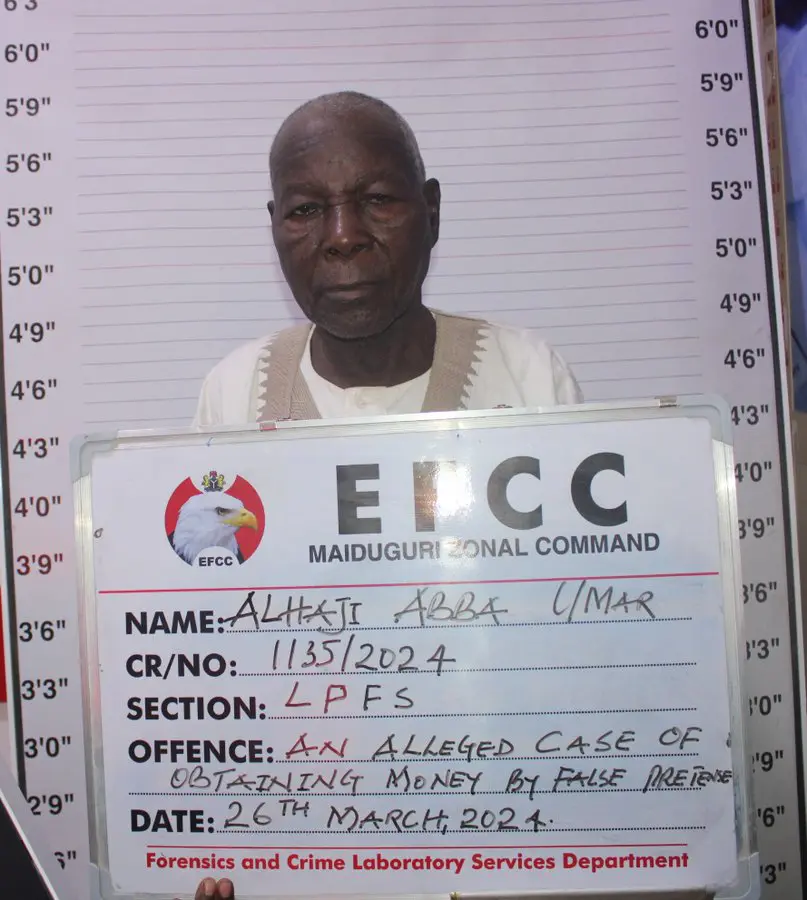 6'3
6'0"
5'9"
5'6"
5'3"
5'0"
4'9"
4'6"
4'3"
4'0"
3'9"
3'6"
3'3"
3'0"
2'9"
6'0"
5'9"
5'6"
5'3"
5'0"
4'9"
4'6"
4'3"
4'0"
3'9"
3'6"
3'3"
3'0"
EFCC
EFCC
MAIDUGURI ZONAL COMMAND
NAME: ALHAJI ABBA UMAR
CR/NO: 1135/2024
SECTION: LPFS
OFFENCE: AN ALLEGED CASE OF
OBTAINING MONEY BY FALSE PRETENSE
DATE: 26TH MARCH, 2024.
Forensics and Crime Laboratory Services Department